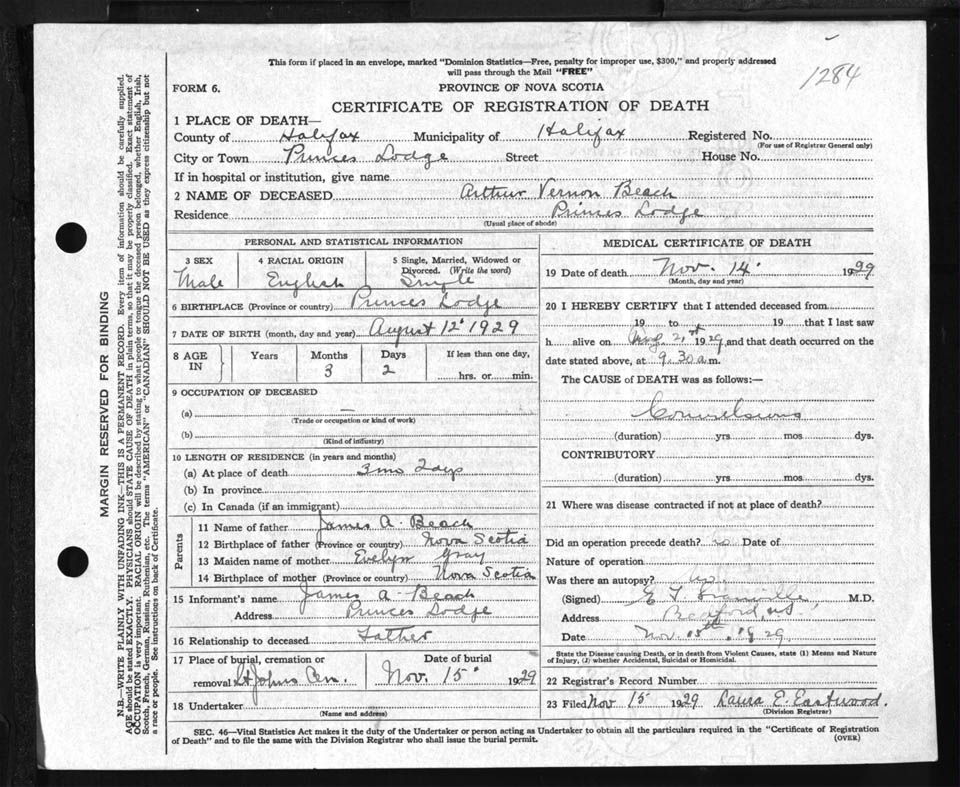 This form if placed in an envelope, marked "Dominion Statistics—Free, penalty for improper use, $300," and properly addressed
will pass through the Mail "FREE"
1284
FORM 6.
PROVINCE OF NOVA SCOTIA
CERTIFICATE OF REGISTRATION OF DEATH
1 PLACE OF DEATH—
County of Halifax Municipality of Halifax Registered No.
(For use of Registrar General only)
City or Town Princes Lodge Street House No.
If in hospital or institution, give name
2 NAME OF DECEASED Arthur Vernon Beach
Residence Princes Lodge
(Usual place of abode)
PERSONAL AND STATISTICAL INFORMATION
3 SEX 4 RACIAL ORIGIN 5 Single, Married, Widowed or
Divorced. (Write the word)
Male English Single
6 BIRTHPLACE (Province or country) Princes Lodge
7 DATE OF BIRTH (month, day and year) August 12 1929
8 AGE IN Years Months Days If less than one day,
3 2 hrs. or min.
9 OCCUPATION OF DECEASED
(a) —
(Trade or occupation or kind of work)
(b)
(Kind of industry)
10 LENGTH OF RESIDENCE (in years and months)
(a) At place of death 3 mo 2 days
(b) In province
(c) In Canada (if an immigrant)
Parents
11 Name of father James A. Beach
12 Birthplace of father (Province or country) Nova Scotia
13 Maiden name of mother Evelyn Gray
14 Birthplace of mother (Province or country) Nova Scotia
15 Informant's name James A. Beach
Address Princes Lodge
16 Relationship to deceased Father
17 Place of burial, cremation or Date of burial
removal St Johns Cem. Nov. 15 1929
18 Undertaker
(Name and address)
MEDICAL CERTIFICATE OF DEATH
19 Date of death Nov. 14 1929
(Month, day and year)
20 I HEREBY CERTIFY that I attended deceased from
19 to 19 that I last saw
h alive on Aug 21st 1929, and that death occurred on the
date stated above, at 9.30 a.m.
The CAUSE of DEATH was as follows:—
Convulsions
(duration) yrs mos dys.
CONTRIBUTORY
(duration) yrs mos dys.
21 Where was disease contracted if not at place of death?
Did an operation precede death? no Date of
Nature of operation
Was there an autopsy? no
(Signed) M.D.
Address Bedford, N.S.
Date Nov. 15th, 1929
State the Disease causing Death, or in death from Violent Causes, state (1) Means and Nature
of Injury, (2) whether Accidental, Suicidal or Homicidal.
22 Registrar's Record Number
23 Filed Nov 15 1929 Laura E. Eastwood.
(Division Registrar)
SEC. 46—Vital Statistics Act makes it the duty of the Undertaker or person acting as Undertaker to obtain all the particulars required in the "Certificate of Registration
of Death" and to file the same with the Division Registrar who shall issue the burial permit. (OVER)
MARGIN RESERVED FOR BINDING
N.B.—WRITE PLAINLY WITH UNFADING INK—THIS IS A PERMANENT RECORD. Every item of information should be carefully supplied.
AGE should be stated EXACTLY. PHYSICIANS should STATE CAUSE OF DEATH in plain terms, so that it may be properly classified. Exact statement of
OCCUPATION is very important. RACIAL ORIGIN will be described by stating to what people or tongue the deceased person belonged, whether English, Irish,
Scotch, French, German, Russian, Ruthenian, etc. The terms "AMERICAN" or "CANADIAN" SHOULD NOT BE USED as they express citizenship but not
a race or people. See instructions on back of Certificate.